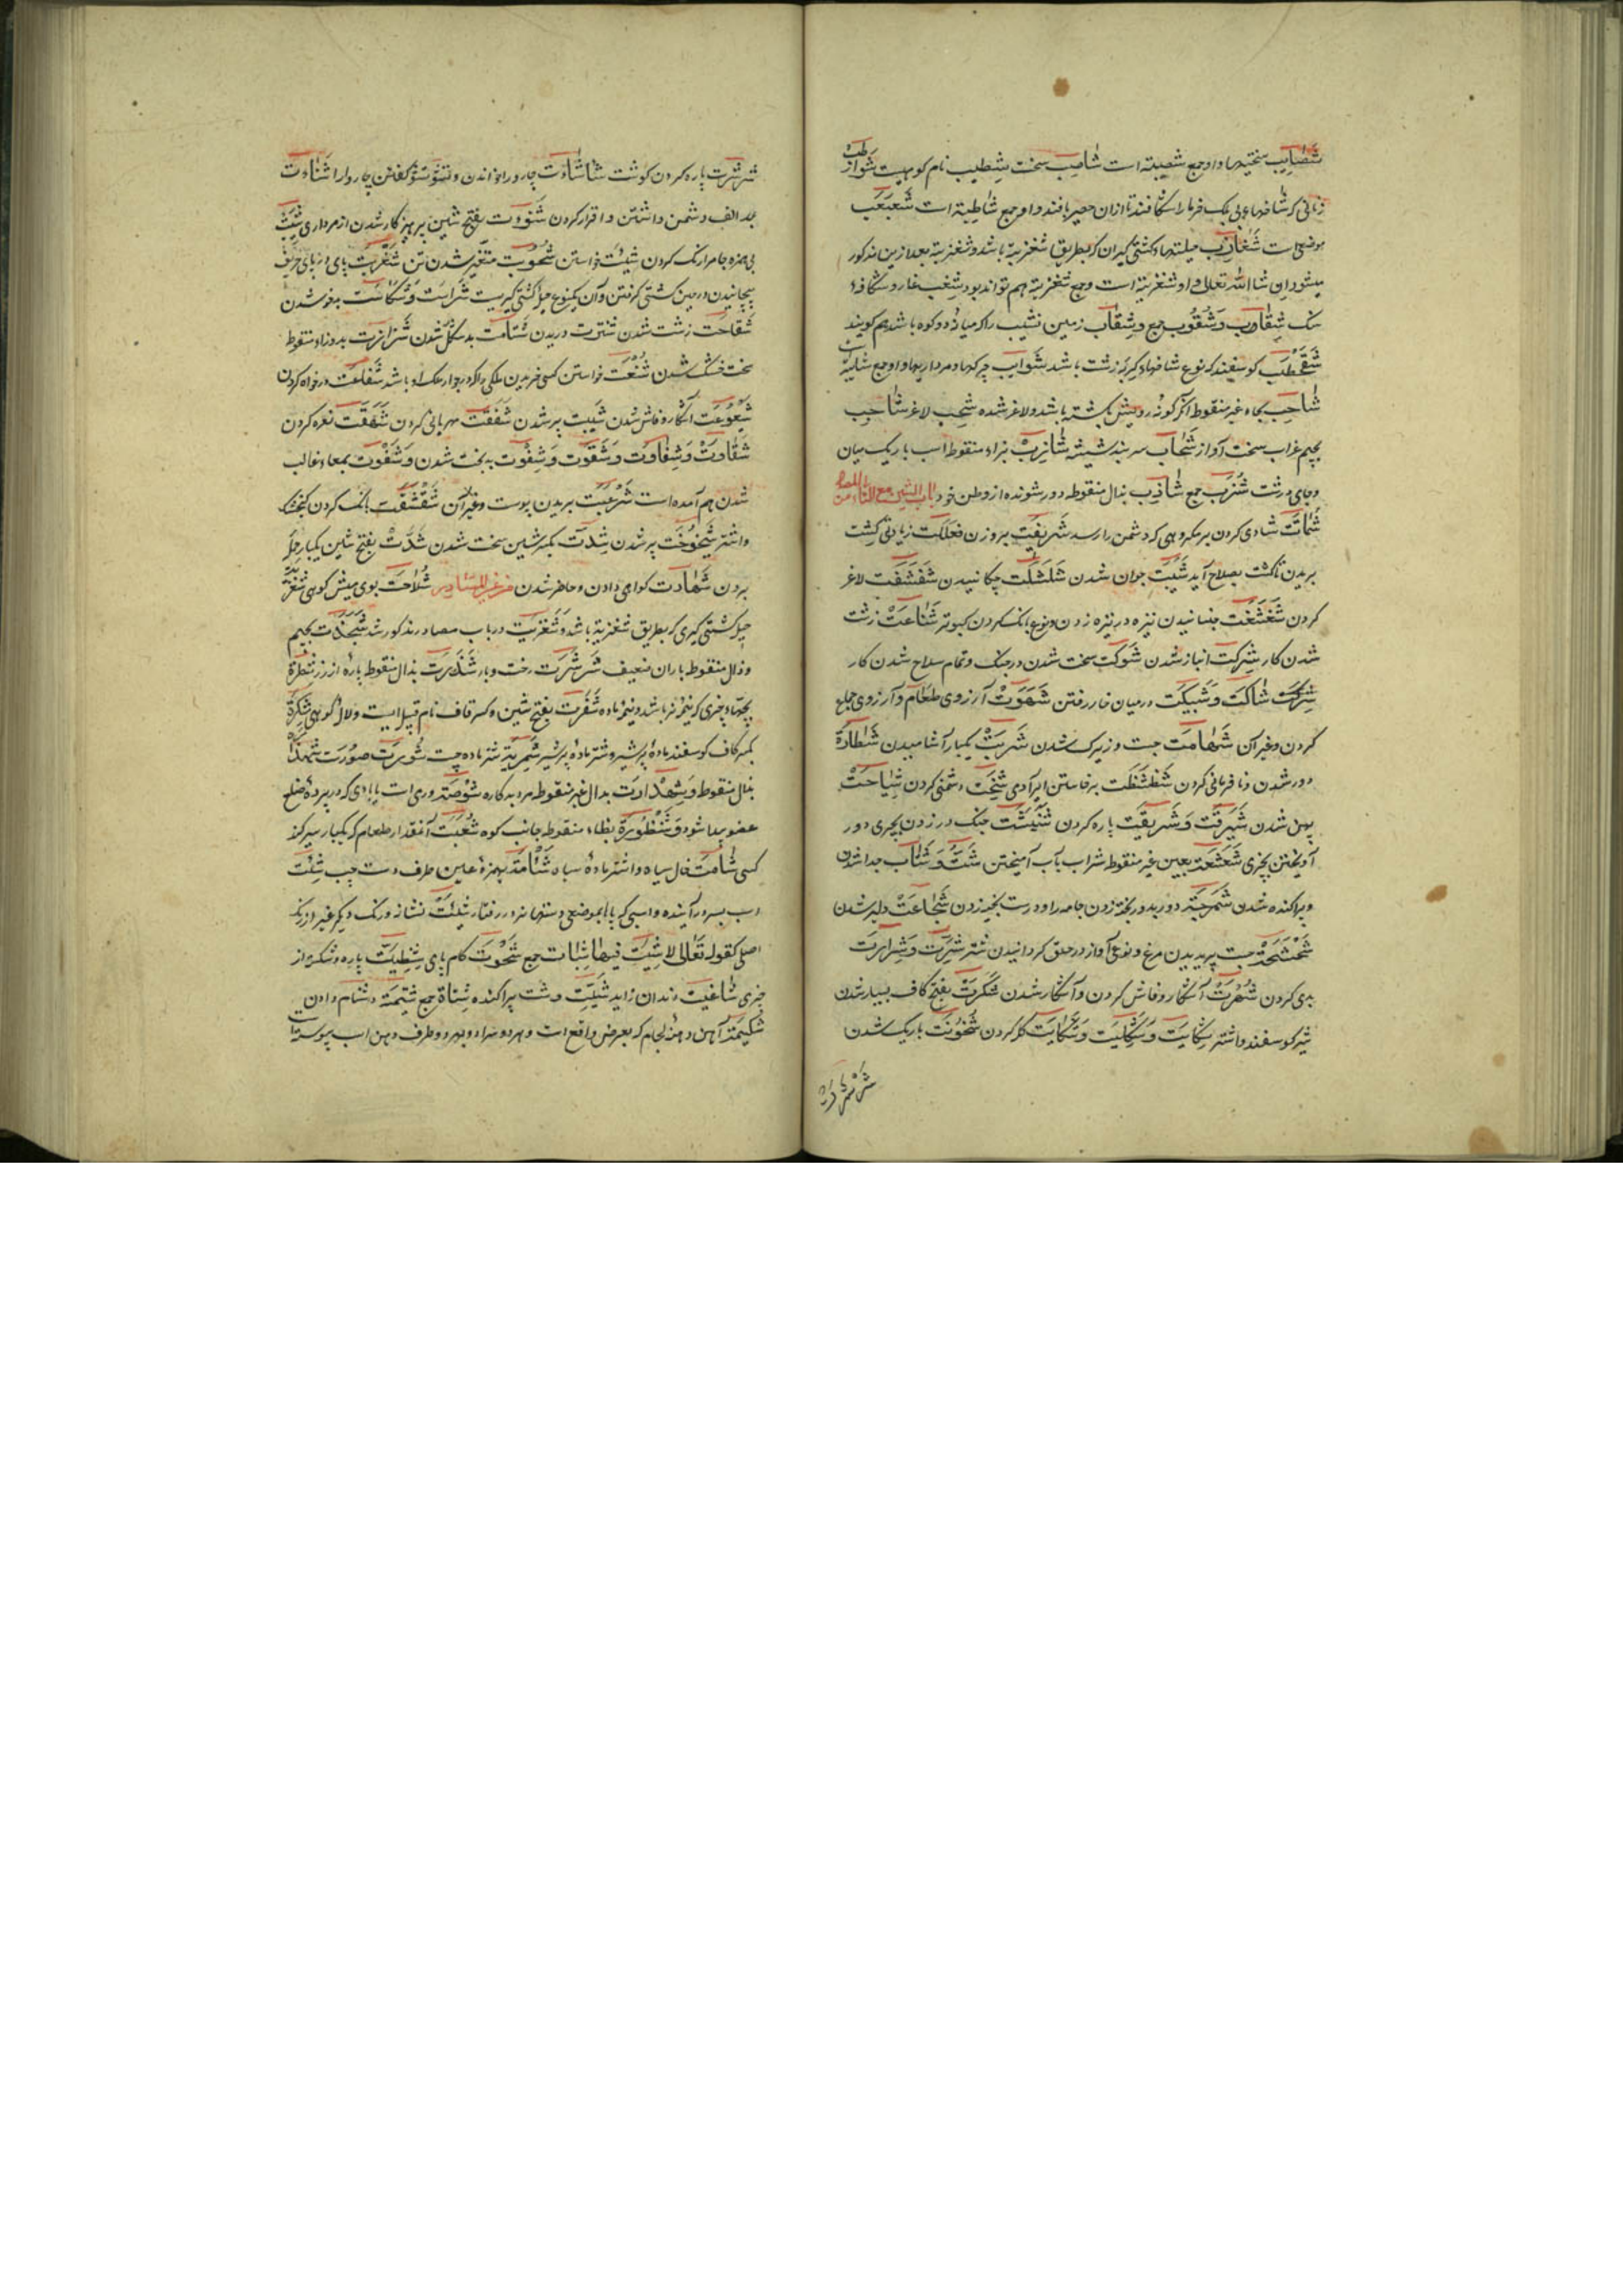 شصایب سختیها و او جمع شصیبة است شاصب سخت شطیب نام کوهیست شواطب
زنانی که شاخهای برک خرما را شکافند تا ازان حصیر بافند و او جمع شاطبة است شعبعب
موضعی است شغازب حیلتهاء کشتی کیران که بطریق شغزبیة باشد و شغزبیة بعد ازین مذکور
میشود ان شا الله تعالی و او شغزبیة است و جمع شغزبیة هم تواند بود شغب غار و شکاف
سنک شقاوب و شقوب جمع و شقاب زمین نشیب را که میانه دو کوه باشد هم کویند
شقحطب کوسفند که نوع شاخهاء کریه زشت باشد شوایب چرکها و مرداریها و او جمع شایبة
شاحب بحاء غیر منقوط آنکه کونه رویش بکشته باشد و لاغر شده شجب لاغر شاجب
بجیم غراب سخت آواز شحاب سربند شیشه شازب بزاء منقوط اسب باریک میان
و جای درشت شزب جمع شاذب بذال منقوطه دور شونده از وطن خود باب الشین مع التاء من المصادر
شماتت شادی کردن بر مکروهی که دشمن را رسد شریفت بر وزن فعللت زیادتی کشت
بریدن تا کشت بصلاح آید شبیبت جوان شدن شلشلت چکانیدن شفشفت لاغر
کردن شغشغت جنبانیدن نیزه در نیزه زدن و نوعی بانک کردن کبوتر شناعت زشت
شدن کار شرکت انباز شدن شوکت سخت شدن در جنک و تمام سلاح شدن کار
شرکت شاکت و شبیکت در میان خار رفتن شهوت آرزوی طعام و آرزوی جماع
کردن و غیر آن شهامت جست و زیرک شدن شربت یکبار آشامیدن شطارة
دور شدن و نافرمانی کردن شظشظت برخاستن ایر آدمی شیاحت
پهن شدن شبرقت و شربقت پاره کردن جنک در زدن بچیزی دور
آویختن بچیزی شعشعت بعین غیر منقوط شراب بآب آمیختن شت و شتات جدا شدن
و پراکنده شدن شمرجت دور بدور بخیه زدن جامه را و درست بخیه زدن شجاعت دلیر شدن
شحشحت جست پریدن مرغ و نوعی آواز در حلق کردانیدن شتر شرت و شرارت
بدی کردن شهرت آشکار و فاش کردن و آشکار شدن شکرت بفتح کاف بسیار شدن
شیر کوسفند و اشتر شکایت و شکیت و شکایت کله کردن شخونت باریک شدن
شرشرت پاره کردن
شرشرت پاره کردن کوشت شاشات چارو را خواندن و تشوتشو کفتن چاروا را شناءت
بمد الف دشمن داشتن و اقرار کردن شنوءت بفتح شین پرهیزکار شدن از مرداری شیت
بی همزه جامه را رنک کردن شیئت خواستن شحوبت متغیر شدن تن شغزبت پای در پای حریف
پیچانیدن در حین کشتی کرفتن و آن یکنوع حیله کشتی کیریست شراست و شکاست بدخو شدن
شقاحت زشت شدن شترت دریدن شتامت بد شکل شدن شزازت بدو زاء منقوط
سخت خشک شدن شفعت خواستن کسی خریدن ملکی را که در جوار ملک او باشد شفاعت درخواه کردن
شیعوعت آشکار و فاش شدن شیبت پیر شدن شفقت مهربانی کردن شهقت نعره کردن
شقاوت و شقاوت و شقوت و شقوت بد بخت شدن و شقوت بمعاء غالب
شدن هم آمده است شرعبت بریدن پوست و غیر آن شقشقت بانک کردن کنجشک
و اشتر شیخوخت پیر شدن شدت بکسر شین سخت شدن شدت بفتح شین یکبار حمله
بردن شهادت کواهی دادن و حاضر شدن من غیر المصادر شلاحت بوی میش کوهی شغزبیة
حیله کشتی کیری که بطریق شغزبیة باشد و شغزبت در باب مصادر مذکور شد شجذت بجیم
و ذال منقوط باران ضعیف شرشرت رخت و بار شذرت بذال منقوط پاره از زر شطرة
بچهاء چیزی که نیمه نر باشد و نیمه ماده شقرت بفتح شین و کسر قاف نام قبیله ایست و لاله کوهی شکرة
بکسر کاف کوسفند ماده پر شیر و شتر ماده پر شیر شمریة شتر ماده جست شورت صورت شهذارة
بذال منقوط و شهدارت بدال غیر منقوط مرد بدکاره شوصة وردی است یا بادی که در پرده ضلع
عضو پیدا شود و شنظورة بظاء منقوطه جانب کوه شعبت آنقدار طعام که یکبار سیر کند
کسی شامت خال سیاه و اشتر ماده سیاه شئامة بهمزه عین طرف دست چپ شئت
اسب بسر درآینده و اسبی که پاها بموضعی دستها نرود در رفتار شیت نشانه و رنک دیکر غیر از رنک
اصلی کقوله تعالی لا شیة فیها شیات جمع شحوت کام پای شظیت پاره و شکسته از
چیزی شاغیت دندان زاید شتیت و شت پراکنده شتاة جمع شتیمة دشنام دادن
شکیمة آهن دهنه لجام که بعرض واقع است و بهر دو سر او و بهر دو طرف دهن اسب پیوسته است